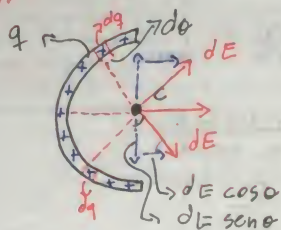 dq
dθ
q
dE
c
dE
dq
dE cosθ
dE senθ